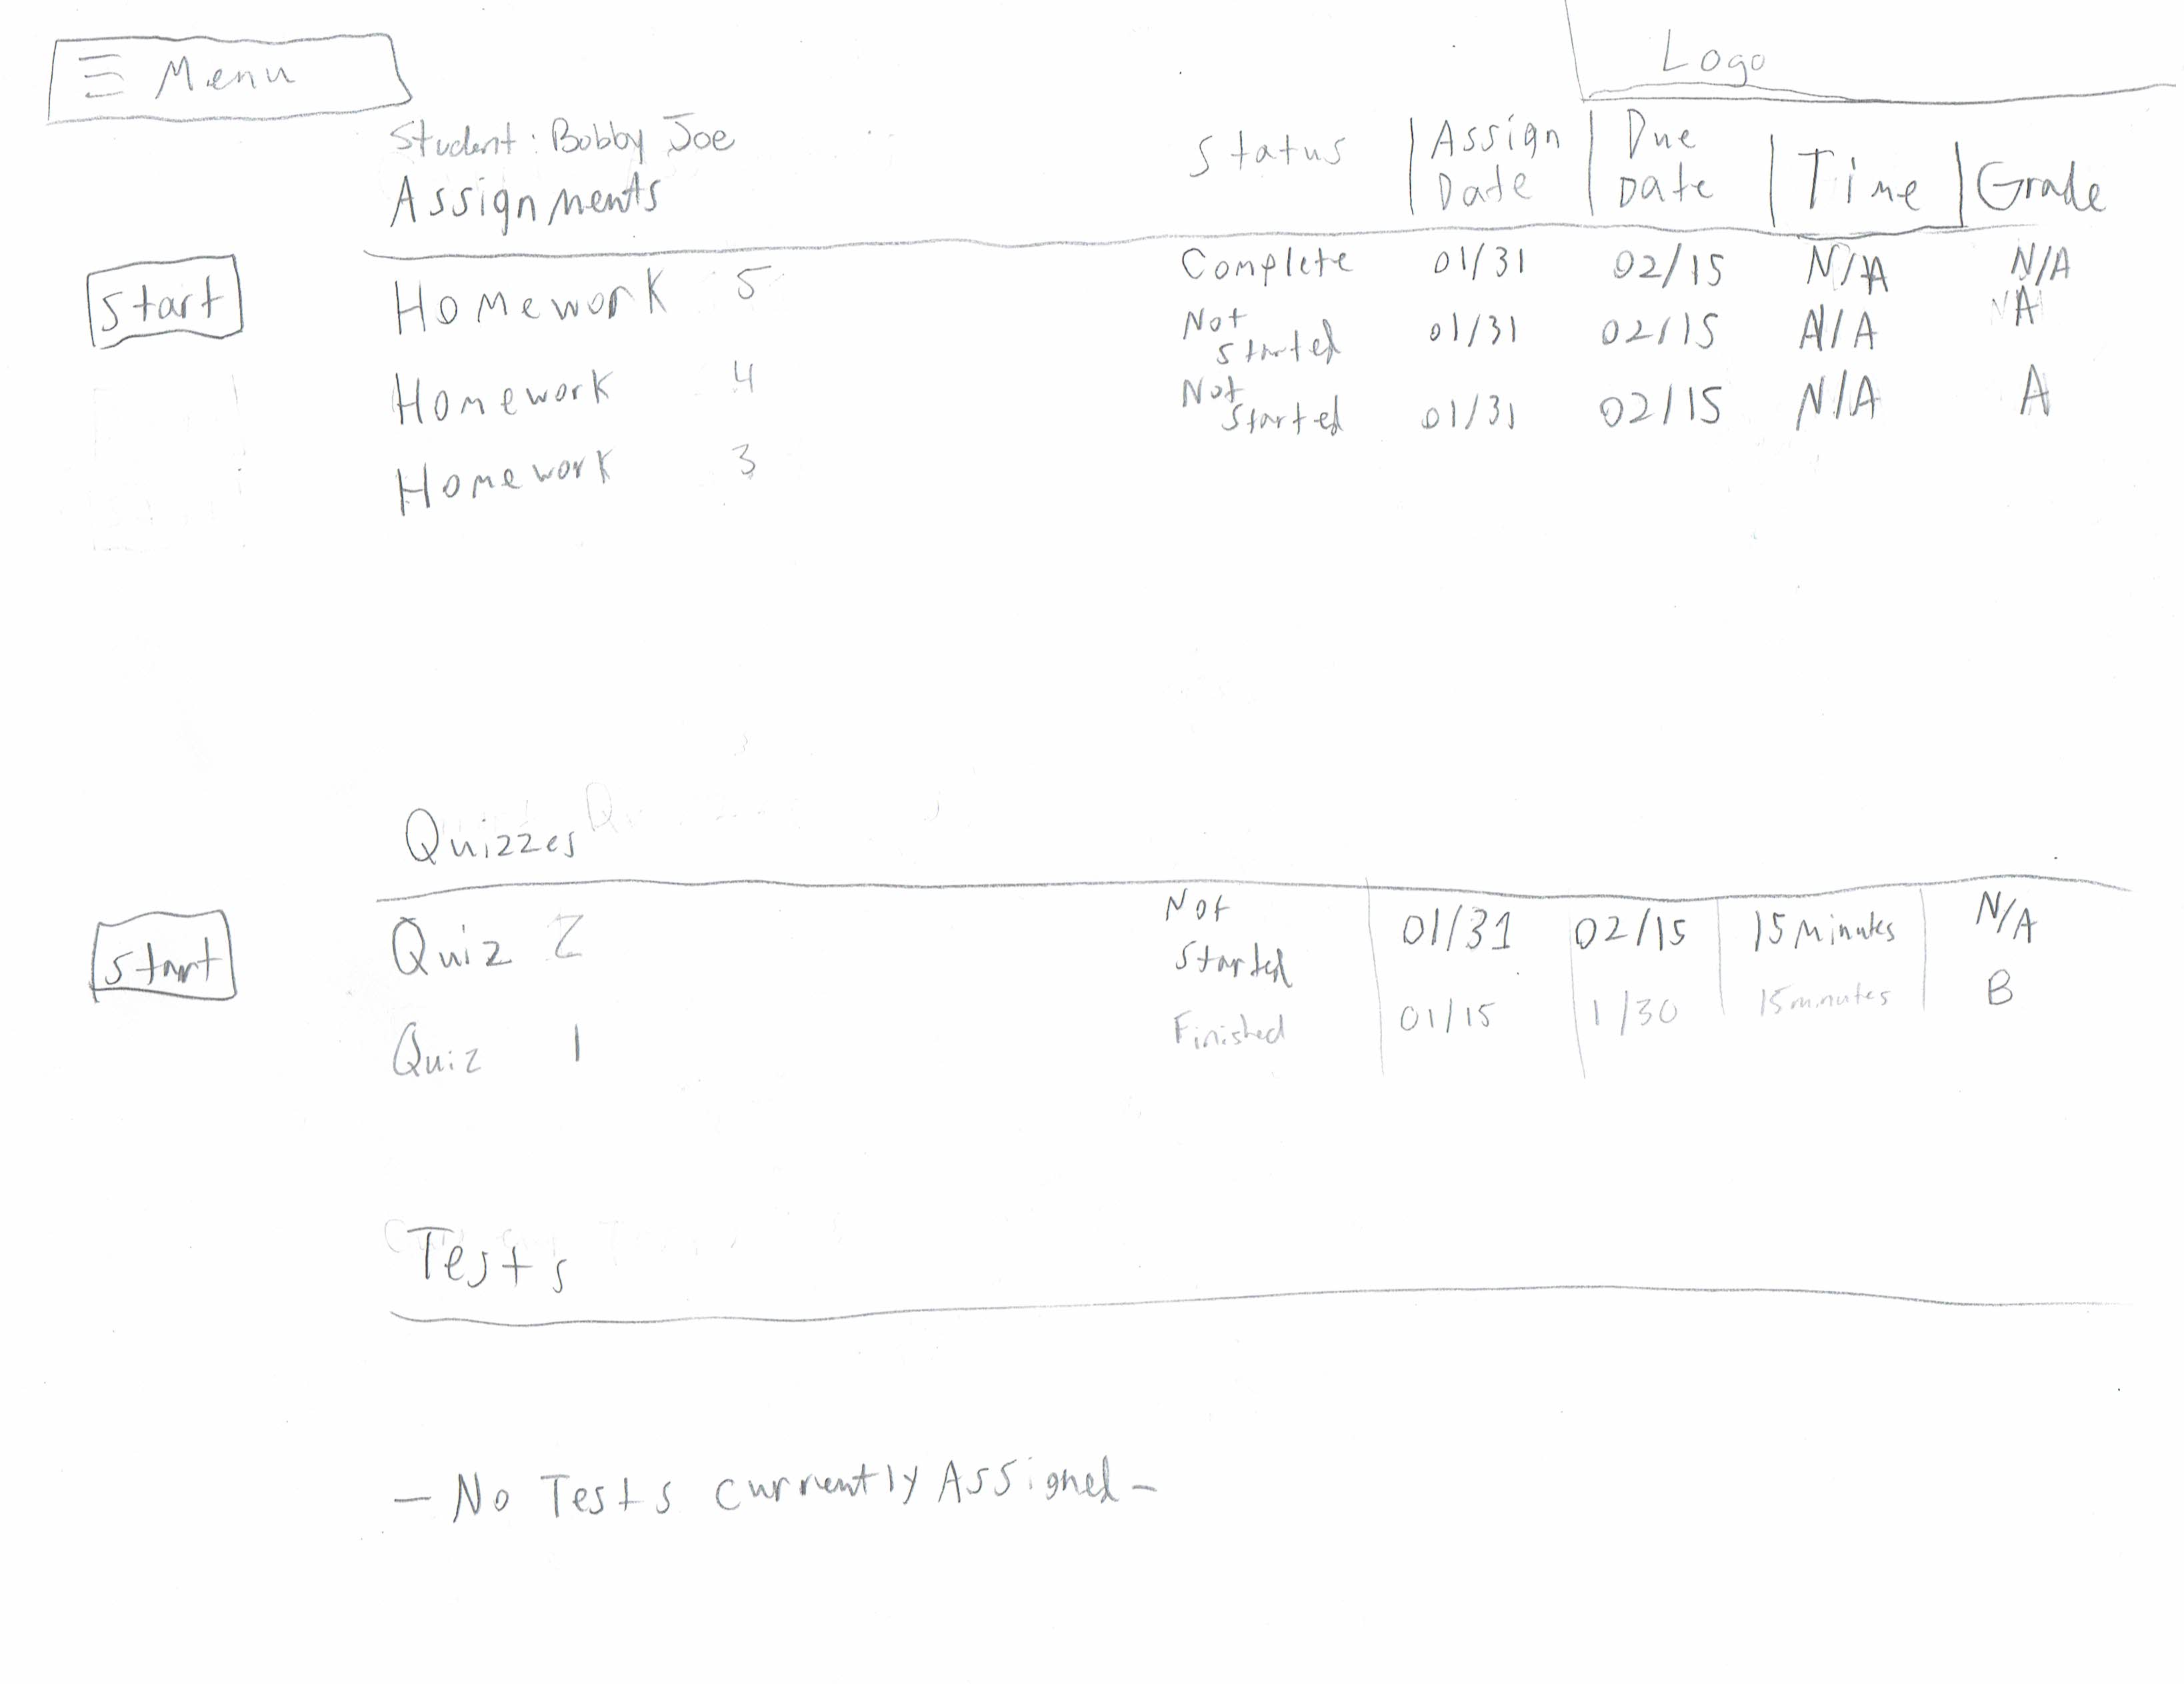 Menu
Logo
Student: Bobby Joe
Assignments
Status
Assign Date
Due Date
Time
Grade
Start
Homework 5
Complete 01/31 02/15 N/A N/A
Homework 4
Not Started 01/31 02/15 N/A A
Homework 3
Not Started 01/31 02/15 N/A A
Quizzes
Start
Quiz 2
Not Started 01/31 02/15 15 Minutes N/A
Quiz 1
Finished 01/15 1/30 15 minutes B
Tests
- No Tests Currently Assigned -